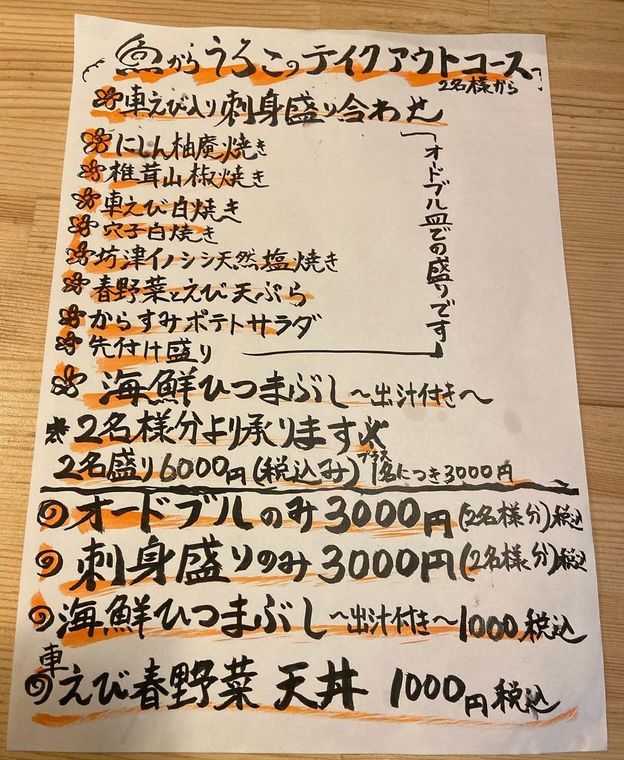 魚からうろこのテイクアウトコース
2名様から
車えび入り刺身盛り合わせ
にしん柚庵焼き
椎茸山椒焼き
車えび白焼き
穴子白焼き
坊津イノシシ天然塩焼き
春野菜とえび天ぷら
からすみポテトサラダ
先付け盛り
オドブル皿での盛りです
海鮮ひつまぶし〜出汁付き〜
※2名様分より承ります※
2名盛り6000円(税込み)プラス1名につき3000円
オードブルのみ3000円(2名様分)税込
刺身盛りのみ3000円(2名様分)税込
海鮮ひつまぶし〜出汁付き〜1000税込
車えび春野菜 天丼 1000円税込